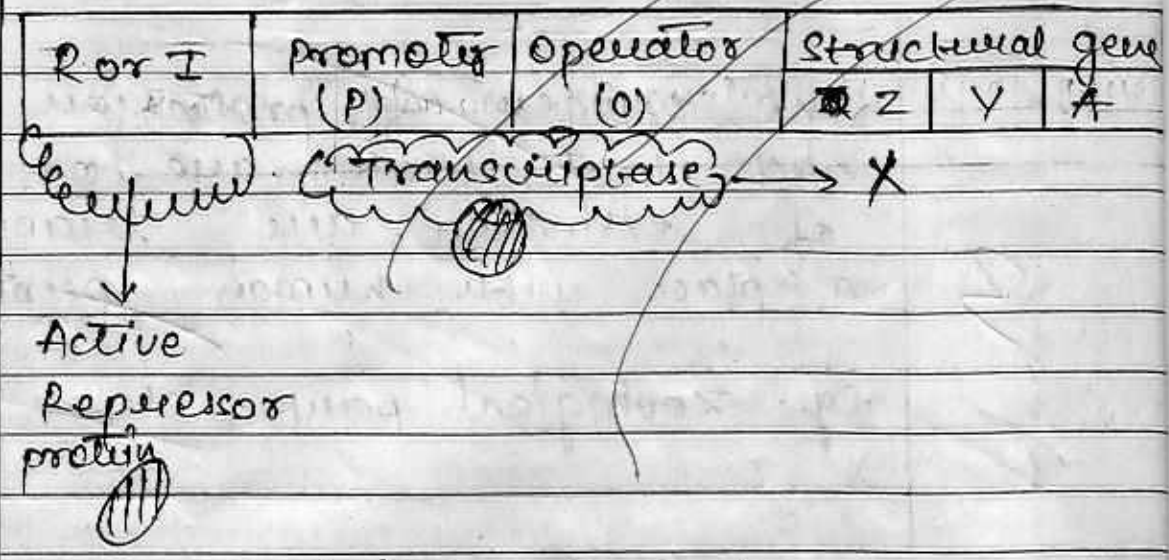 R or I
Promoter
(P)
Operator
(O)
Structural gene
Z
Y
A
Transcriptase → X
Active
Repressor
protein